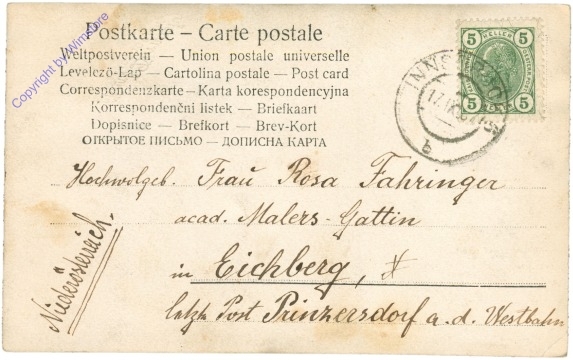 Postkarte – Carte postale
Weltpostverein — Union postale universelle
Levelező-Lap — Cartolina postale — Post card
Correspondenzkarte — Karta korespondencyjna
Korrespondenční listek — Briefkaart
Dopisnice — Brefkort — Brev-Kort
ОТКРЫТОЕ ПИСЬМО — ДОПИСНА КАРТА
Copyright by Winstore
5 5
HELLER
5 5
INNSBRUCK
b
Hochwolgeb. Frau Rosa Fahringer
acad. Malers-Gattin
in Eichberg,
letzte Post Prinzersdorf a. d. Westbahn
Niederösterreich.